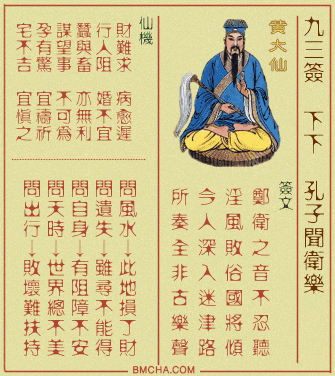 九三簽 下下 孔子聞衛樂
黃大仙
簽文
鄭衛之音不忍聽
淫風敗俗國將傾
今人深入迷津路
所奏全非古樂聲
仙機
財難求 病愈遲
行人阻 婚不宜
蠶與畜 亦無利
謀望事 不可為
孕有驚 宜禱祈
宅不吉 宜慎之
問風水→此地損丁財
問遺失→雖尋不能得
問自身→有阻障不安
問天時→世界總不美
問出行→敗壞難扶持
BMCHA.COM